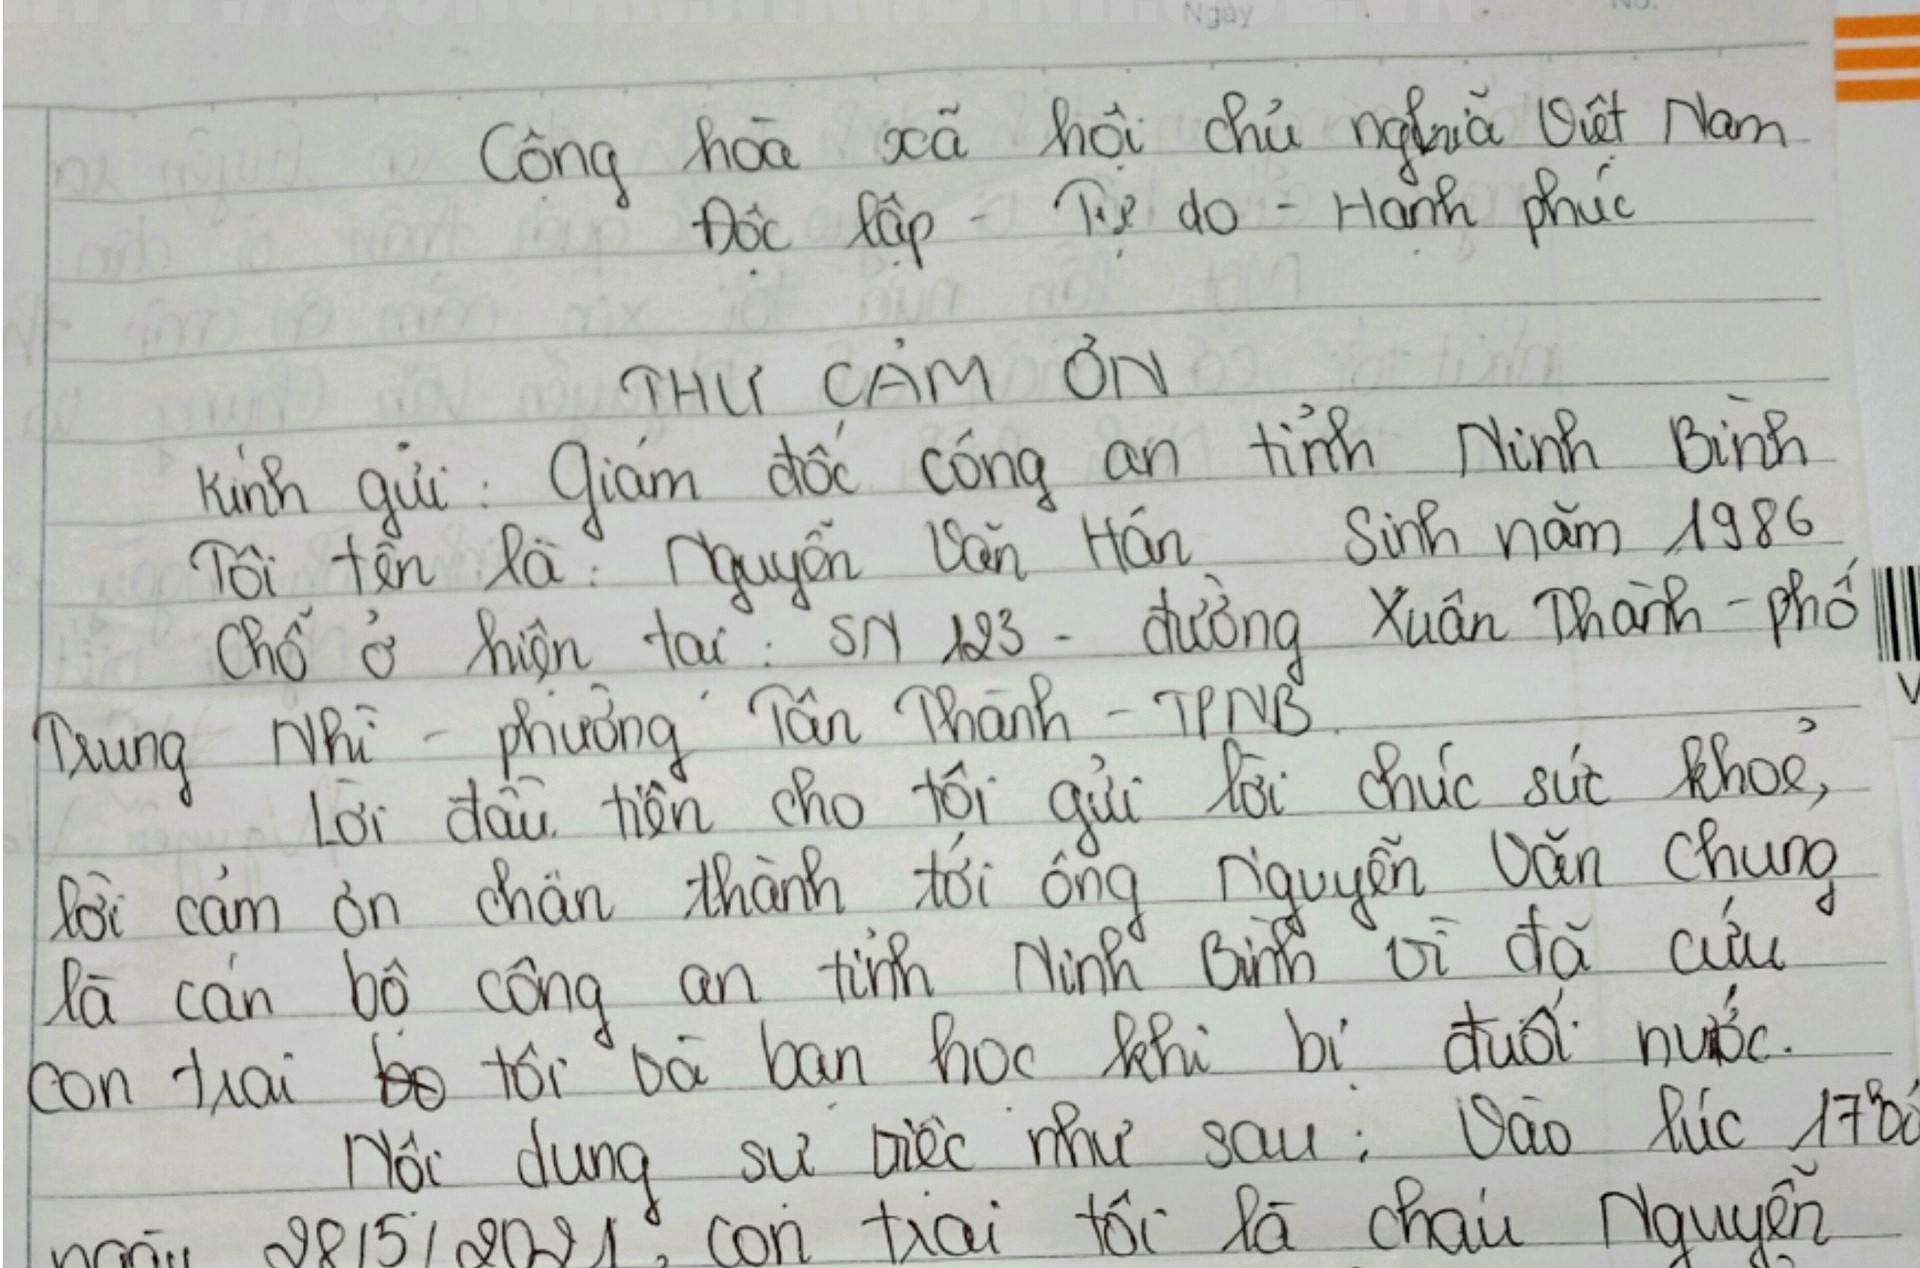 Ngày
No.
Cộng hoà xã hội chủ nghĩa Việt Nam
Độc lập - Tự do - Hạnh phúc
THƯ CẢM ƠN
Kính gửi: Giám đốc công an tỉnh Ninh Bình
Tôi tên là: Nguyễn Văn Hán Sinh năm 1986
Chỗ ở hiện tại: SN 123 - đường Xuân Thành - phố
Trung Nhì - phường Tân Thành - TPNB.
Lời đầu tiên cho tôi gửi lời chúc sức khoẻ,
lời cảm ơn chân thành tới ông Nguyễn Văn Chung
là cán bộ công an tỉnh Ninh Bình vì đã cứu
con trai tôi và bạn học khi bị đuối nước.
Nội dung sự việc như sau: Vào lúc 17h30
ngày 28/5/2021, con trai tôi là cháu Nguyễn